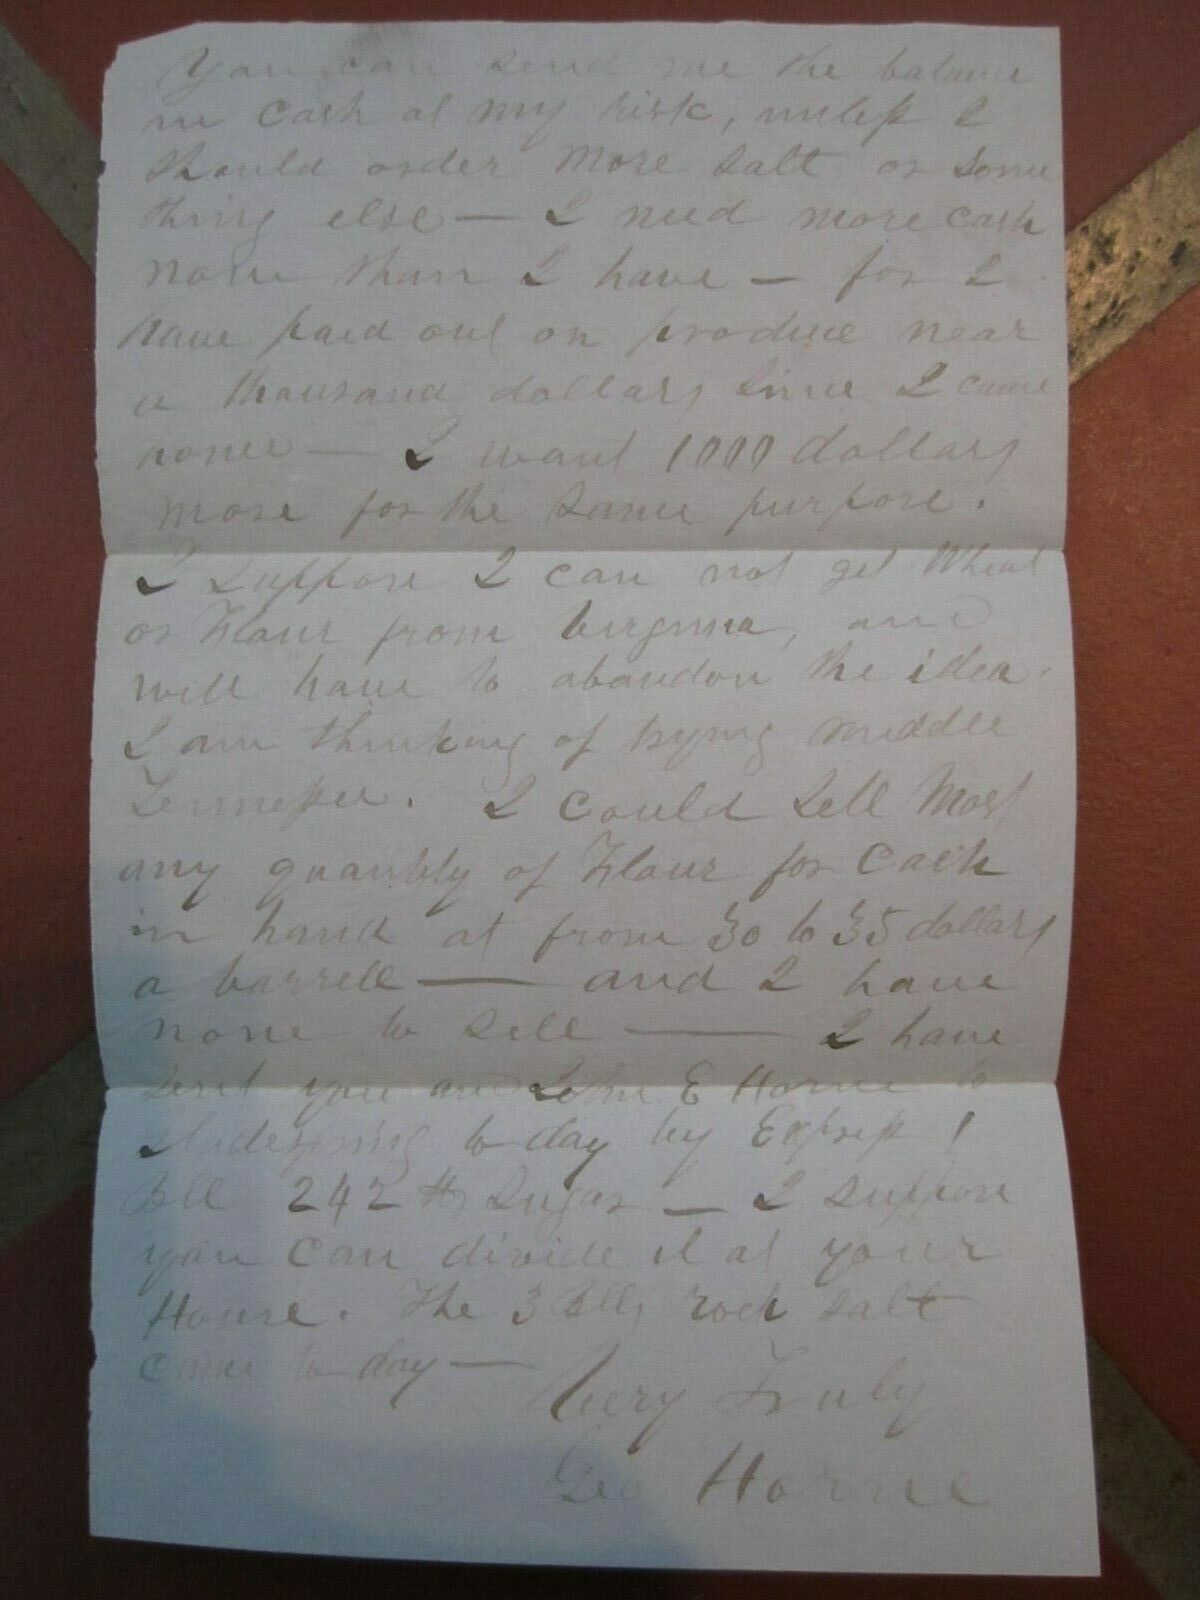 You can send me the balance
in Cash at my risk, unless I
should order more salt or some
thing else — I need more cash
now than I have — for I
have paid out on produce near
a thousand dollars since I came
home — I want 1000 dollars
more for the same purpose.
I suppose I can not get Wheat
or Flour from Virginia, and
will have to abandon the idea.
I am thinking of trying middle
Tennessee. I could sell Most
any quantity of Flour for Cash
in hand at from 30 to 35 dollars
a barrell — and I have
none to sell — I have
sent you and John E Horne to
Gladespring to day by Express 1
Bll 242 lbs Sugar — I suppose
you can divide it at your
House. The 3 Blls rock salt
came to day —
Very Truly
Geo Horne